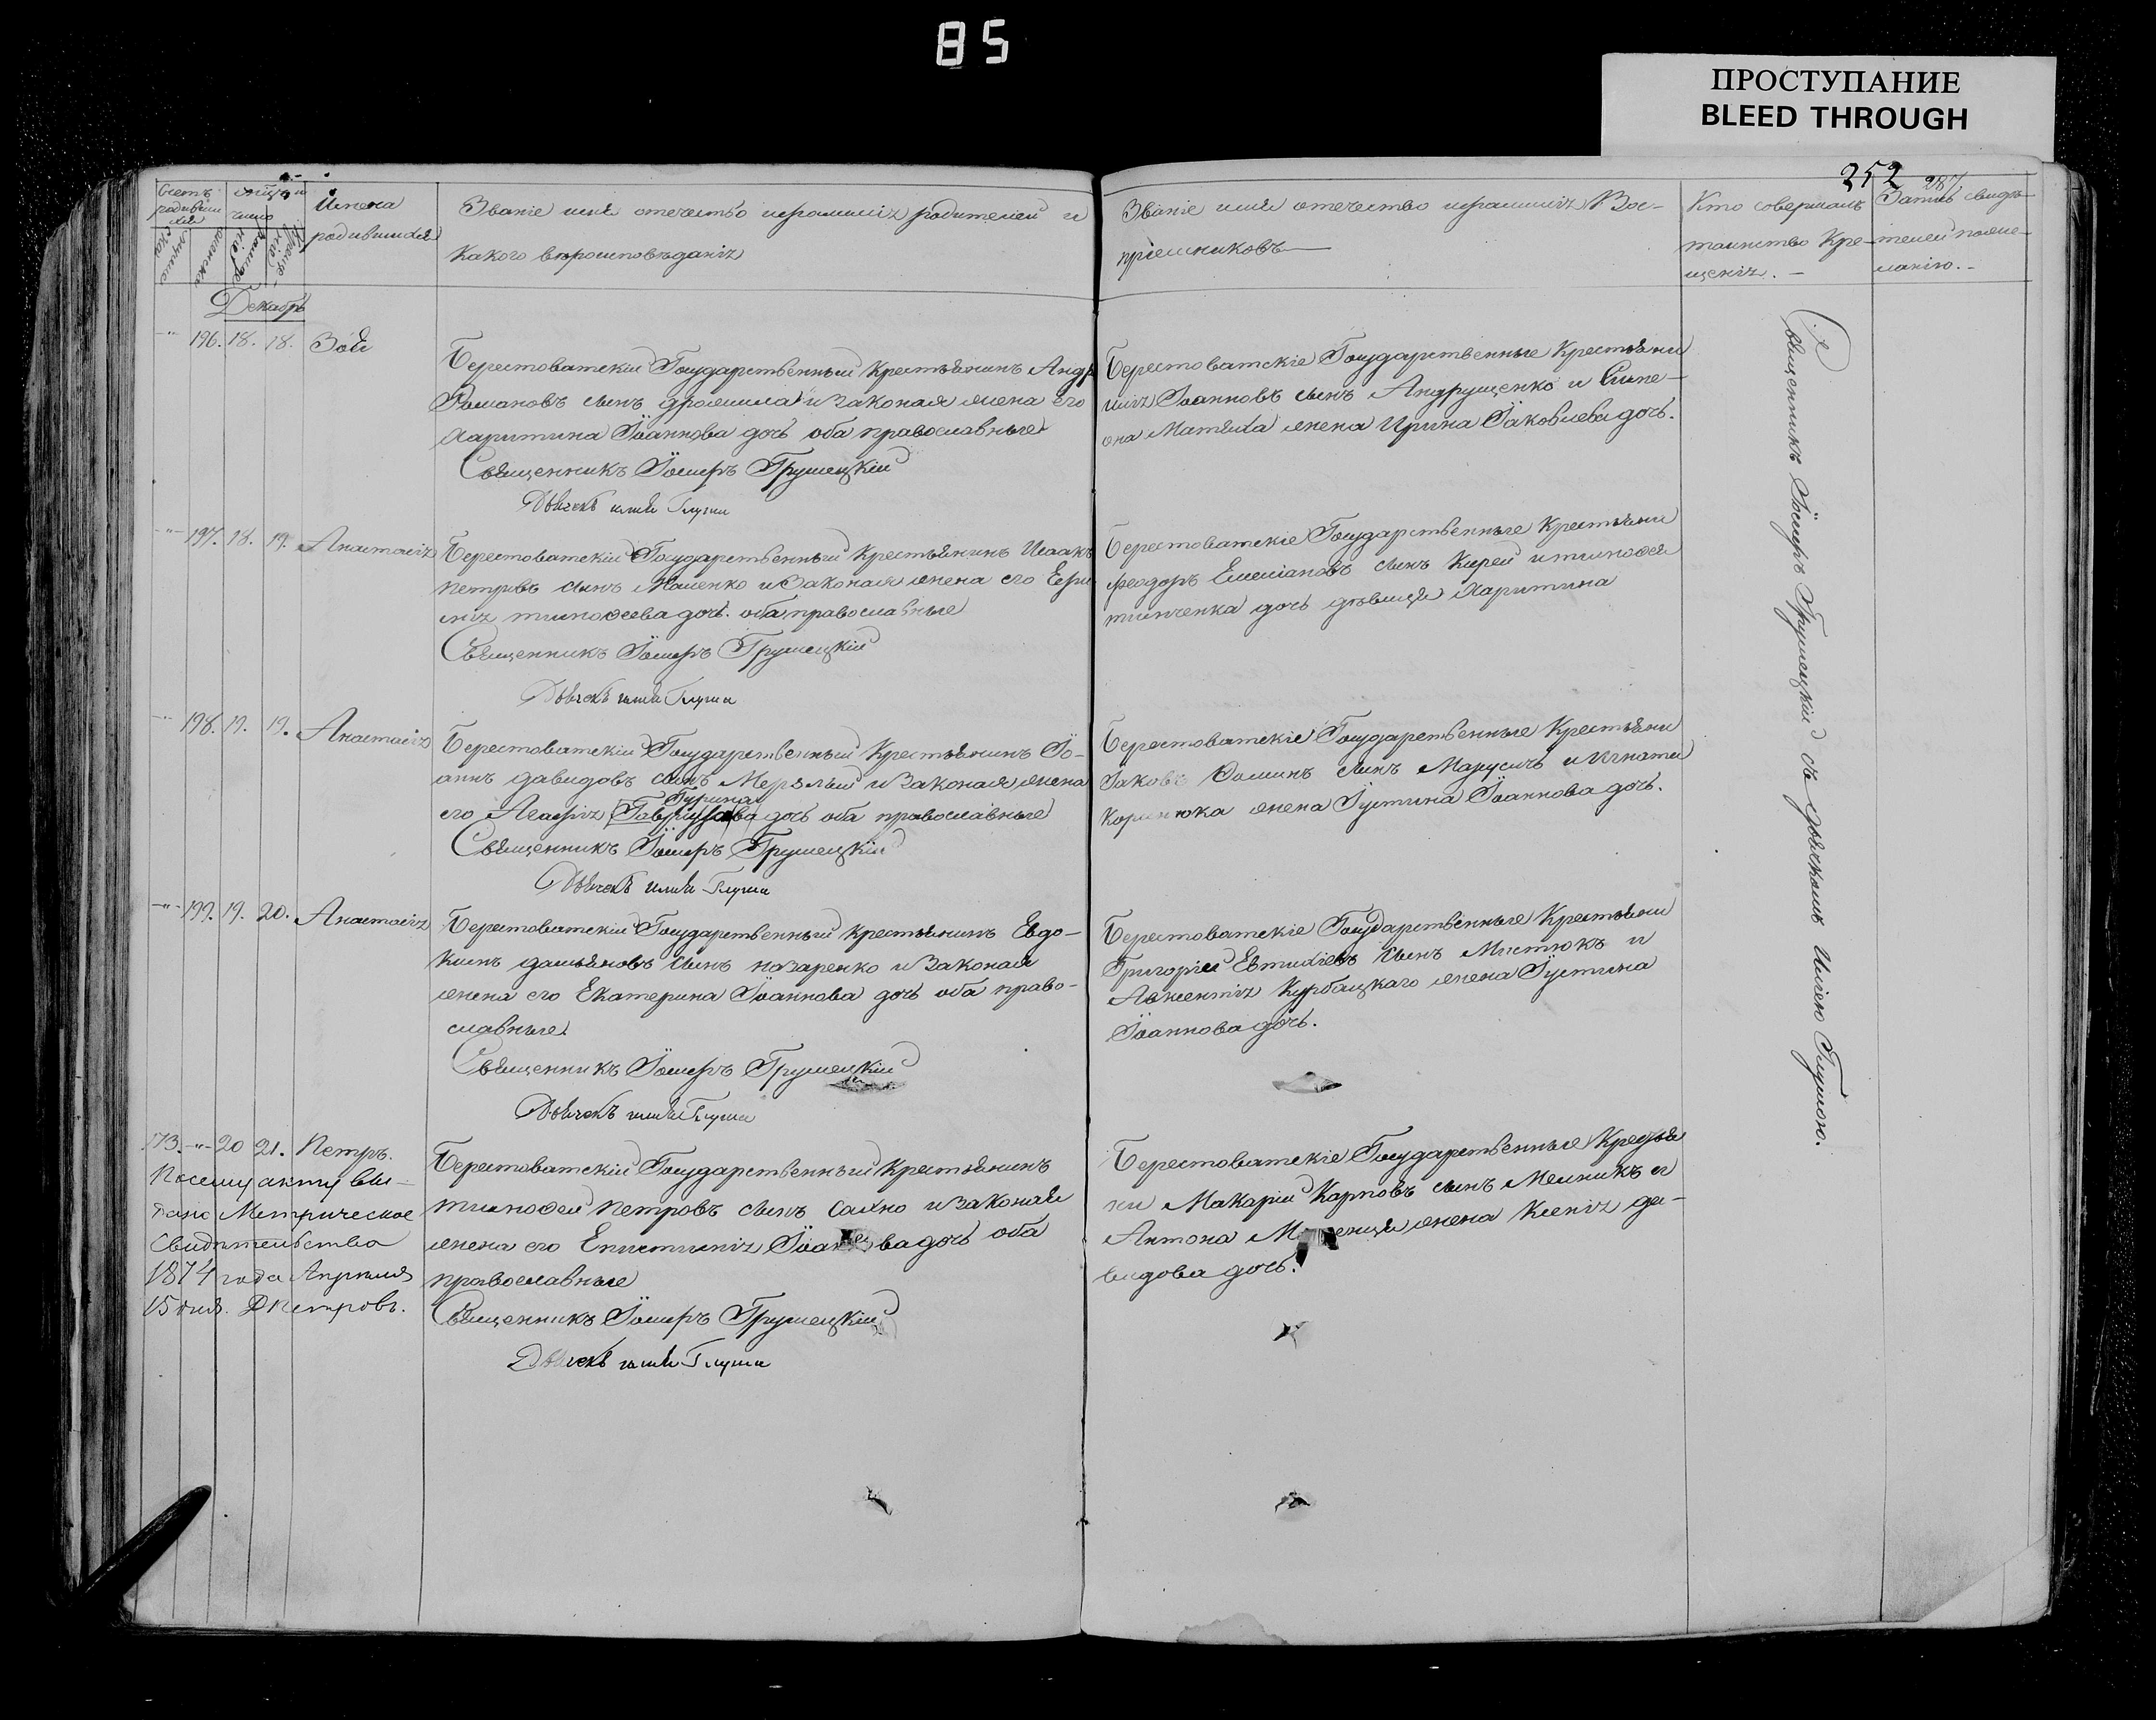 85
ПРОСТУПАНИЕ
BLEED THROUGH
252
287
Счетъ родившихся
мужеска
женска
мѣсяцъ и число
рожденія
крещенія
Имена
родившихся
Званіе имя отечество ифамилія родителей и
какого вѣроисповѣданія
Званіе имя отечество ифамилія Вос-
пріемниковъ
Кто совершалъ
таинство Кре-
щенія. -
Запись свидѣ-
телей пожела-
нію. -
Декабрь
-"- 196. 18. 18. Зоя
Берестоватскій Государственный Крестьянинъ Андр
Романовъ сынъ и законая жена его
Харитина Іоаннова дочь оба православные
Священникъ Іосифъ Грушецкій
Дьячекъ илія Глуша
Берестоватскіе Государственные Крестьяни
Іоанновъ сынъ Андрущенко и Симе-
она жена Ирина Іаковлева дочь.
-"- 197. 18. 19. Анастасія
Берестоватскій Государственный Крестьянинъ Исаакъ
петровъ сынъ и Законая жена его Ефи
мія тимоѳеева дочь. оба православные
Священникъ Іосифъ Грушецкій
Дьячекъ илія Глуша
Берестоватскіе Государственные Крестьяни
феодоръ Емеліановъ сынъ Кирей и тимоѳея
дочь дѣвица Харитина
-"- 198. 19. 19. Анастасія
Берестоватскій Государственный Крестьянинъ Іо-
аннъ давидовъ сынъ Мерзлый и Законая жена
Гурина
его Агафія дочь оба православные
Священникъ Іосифъ Грушецкій
Дьячекъ илія Глуша
Берестоватскіе Государственные Крестьяни
Іаковъ Ѳоминъ сынъ Марусичъ и Игнатія
жена Іустина Іоаннова дочь.
-"- 199. 19. 20. Анастасія
Берестоватскій Государственный крестьянинъ Евдо-
кимъ дамьяновъ сынъ назаренко и Законая
жена его Екатерина Іоаннова дочь оба право-
славные
Священникъ Іосифъ Грушецкій
Дьячекъ илія Глуша
Берестоватскіе Государственные Крестьяни
Григорій Евтихіевъ сынъ Мистюкъ и
Авксентія Курбацкаго жена Іустина
Іоаннова дочь.
173. -"- 20 21. Петръ.
Посему акту вы-
дано Метрическое
Свидѣтельство
1874 года Апрѣля
15 дня. Д Петровъ.
Берестоватскій Государственный Крестьянинъ
тимоѳей петровъ сынъ Сахно и Законая
жена его Епистимія дочь оба
православные
Священникъ Іосифъ Грушецкій
Дьячекъ илія Глуша
Берестоватскіе Государственные Крестья
ни Макарій Карповъ сынъ Мелникъ и
Антона жена Ксенія да-
видова дочь.
Священникъ Іосифъ Грушецкій съ дьячкомъ Иліею Глушою.